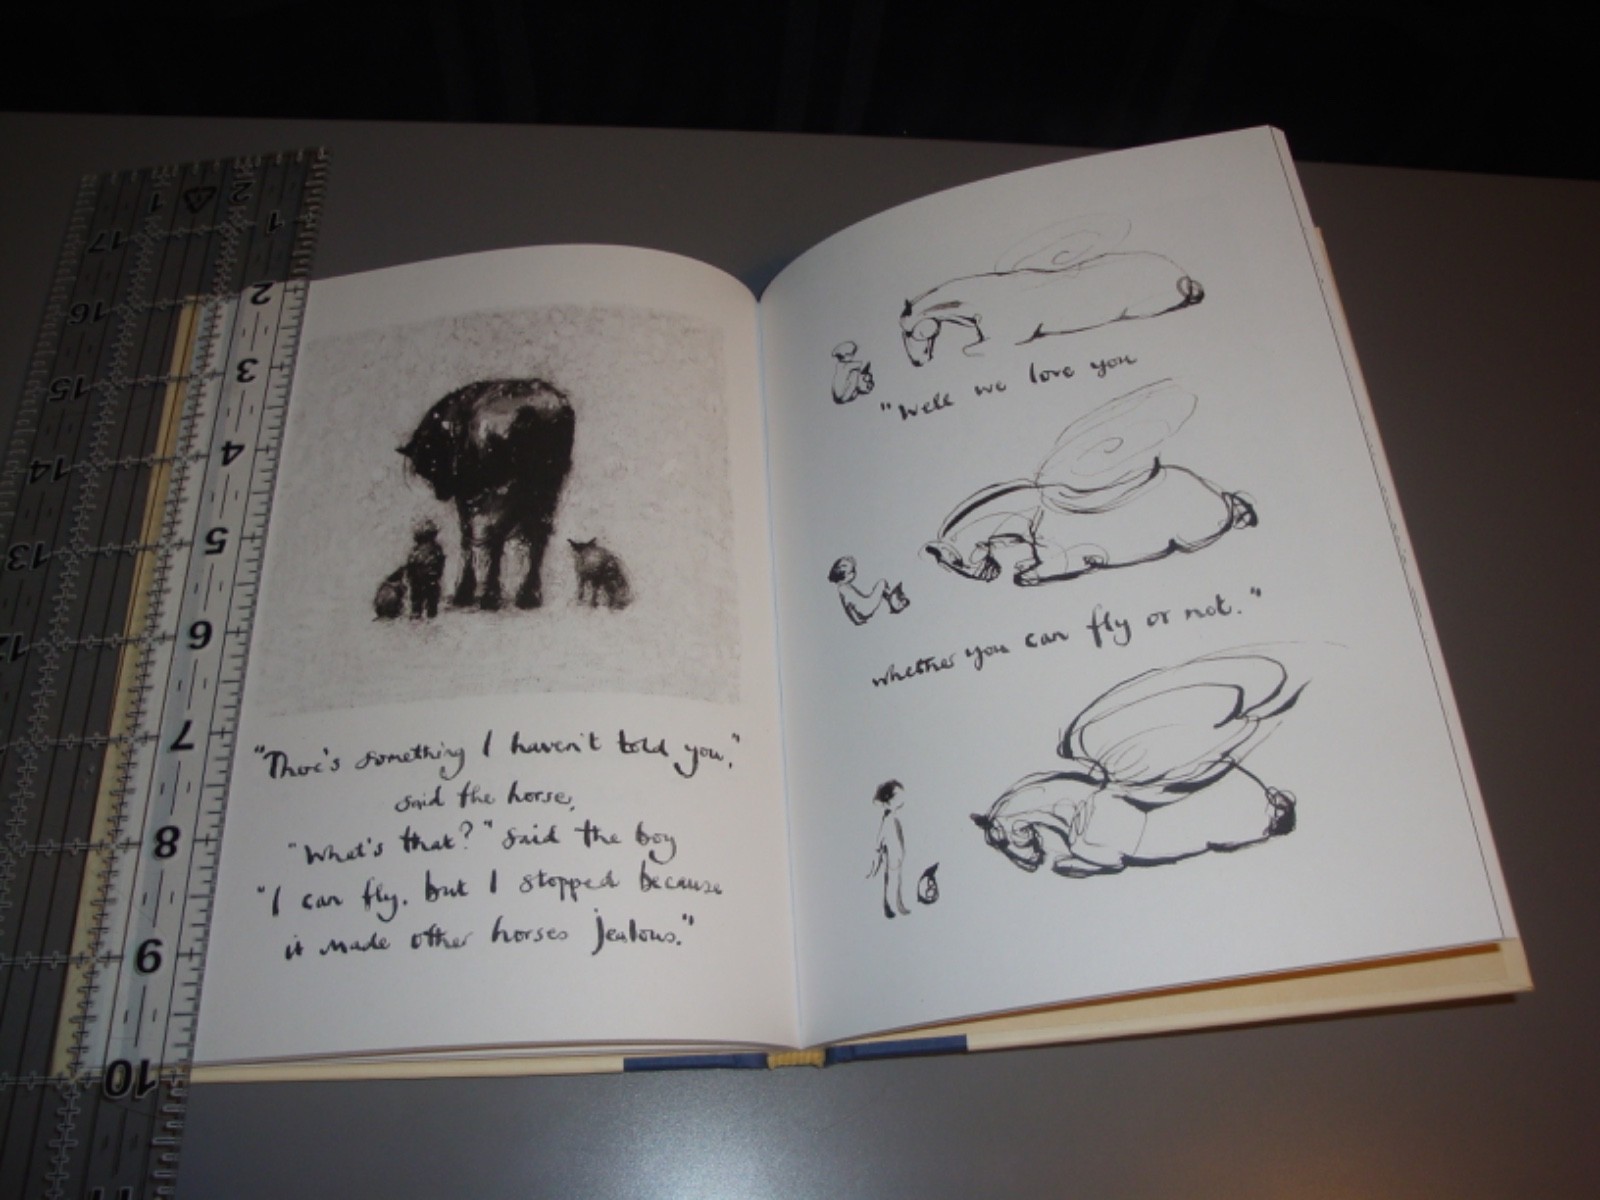 "There's something I haven't told you,"
said the horse,
"What's that?" said the boy
"I can fly, but I stopped because
it made other horses jealous."
"Well we love you
whether you can fly or not."
1 2
17 1
16 2
15 3
14 4
13 5
12 6
7
8
9
10
11